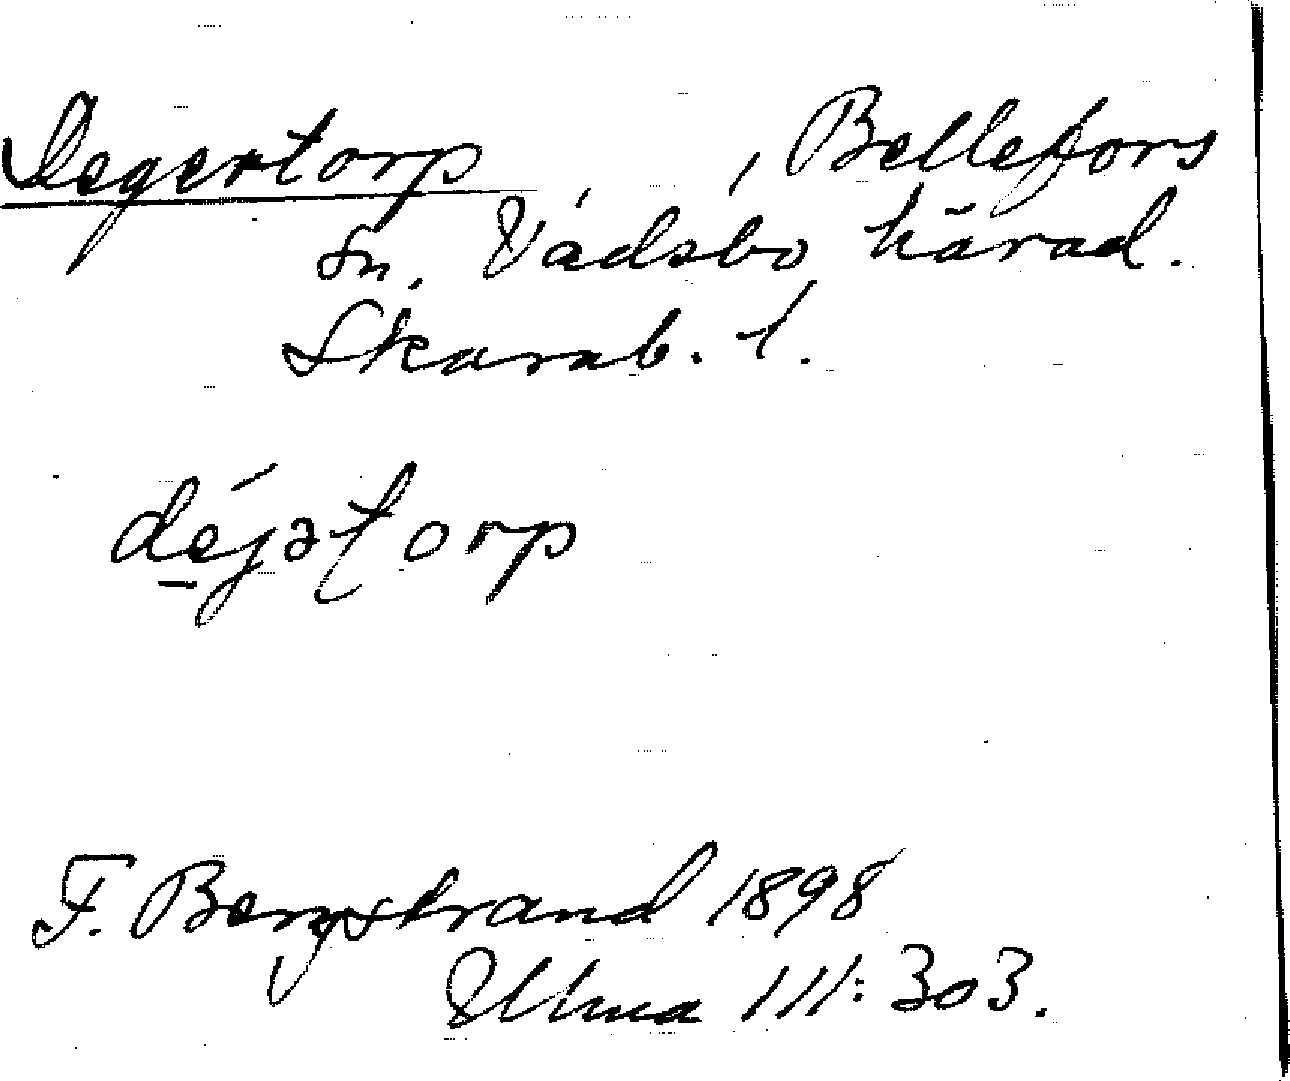 Degertorp, , Bellefors
sn. Vadsbo härad.
Skarab. l.
déjətorp
F. Bergstrand 1898
Ulma 111: 303.